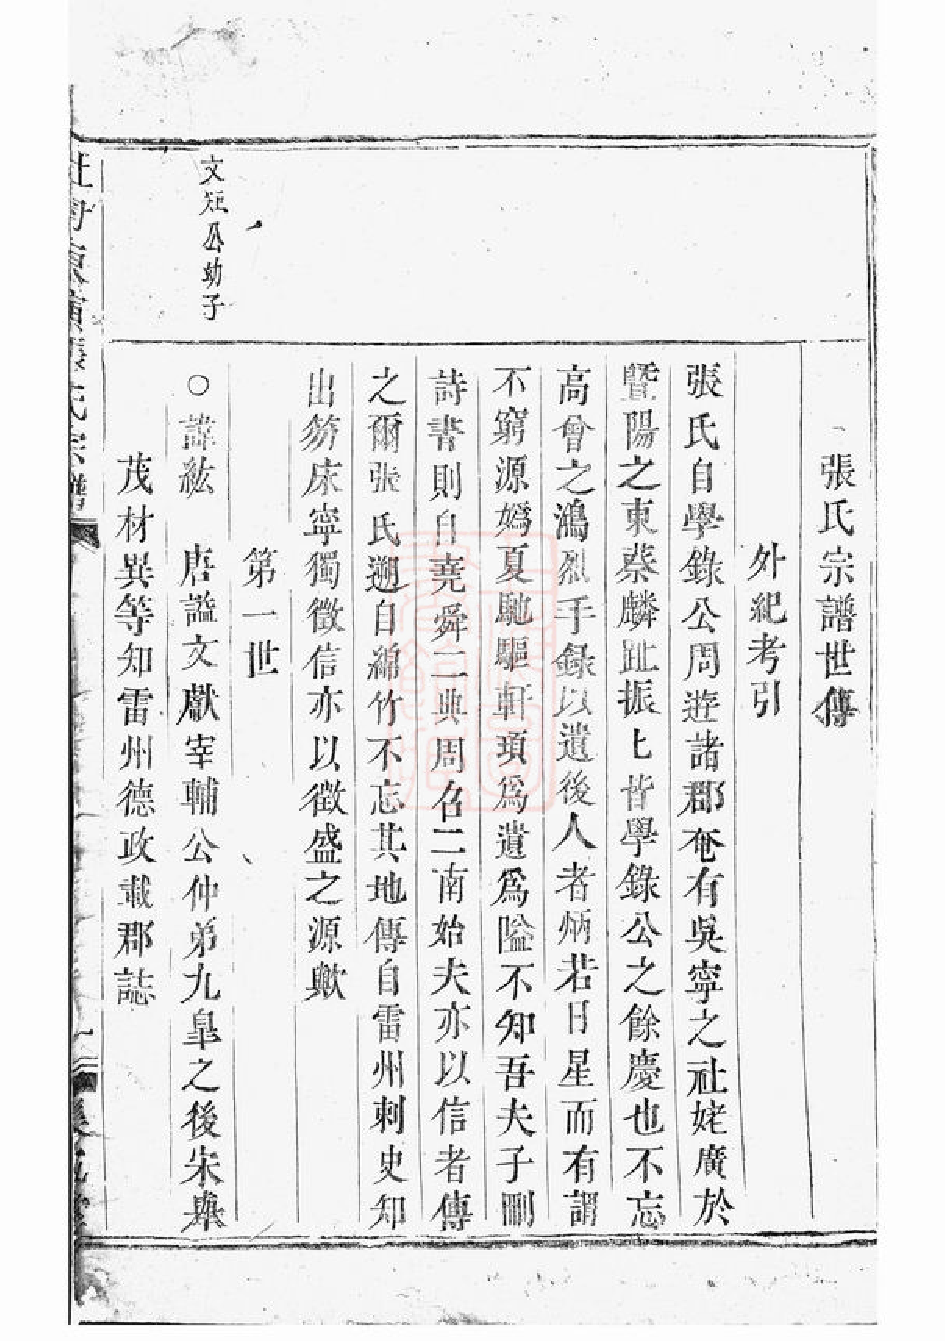 張氏宗譜世傳
外紀考引
張氏自學錄公周遊諸郡奄有吳寧之社姥廣於
暨陽之東蔡麟趾振〻皆學錄公之餘慶也不忘
高曾之鴻烈手錄以遺後人者炳若日星而有謂
不窮源嬀夏馳驅軒頊爲遺爲隘不知吾夫子刪
詩書則自堯舜二典周召二南始夫亦以信者傳
之爾張氏遡自綿竹不忘其地傳自雷州刺史知
出笏床寧獨徵信亦以徵盛之源歟
第一世
文矩公幼子
○諱紘 唐謚文獻宰輔公仲弟九皐之後宋舉
茂材異等知雷州德政載郡誌